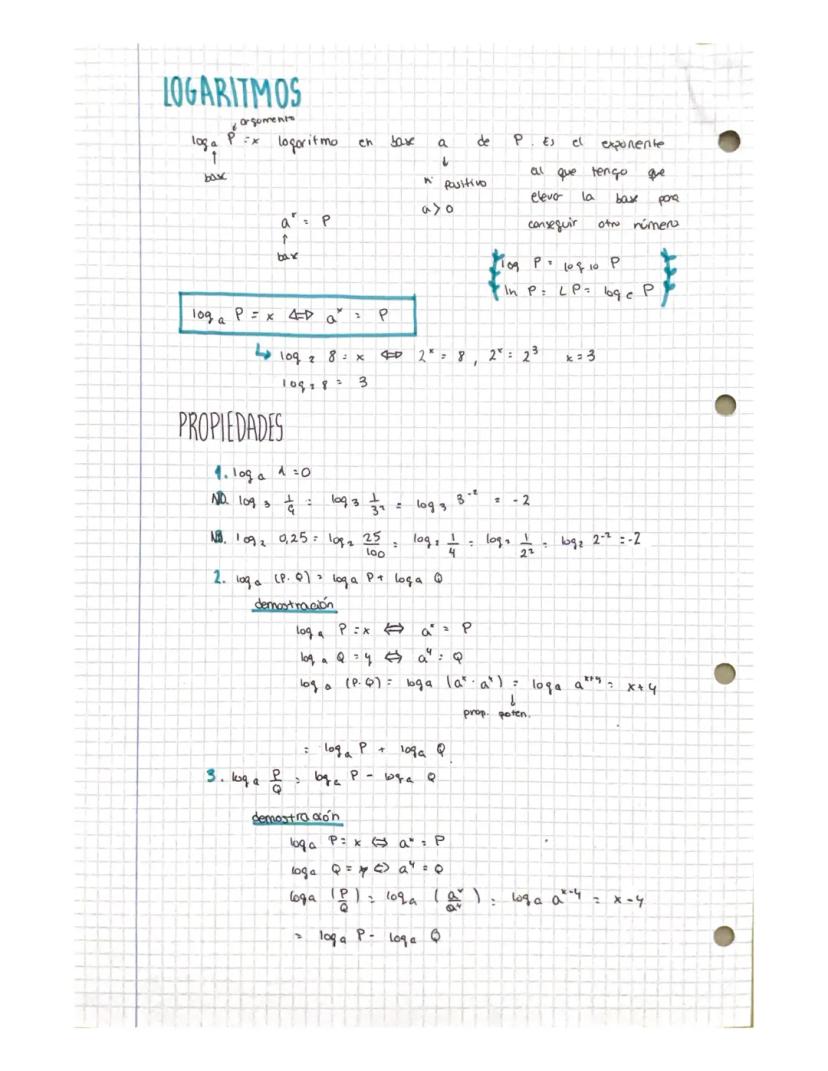 LOGARITMOS
argumento
logₐ P = x logaritmo en base a de P. Es el exponente
base
nº positivo
al que tengo que
a > 0
elevar la base para
conseguir otro número
aˣ = P
base
log P = log₁₀ P
ln P = LP = logₑ P
logₐ P = x ⇔ aˣ = P
↳ log₂ 8 = x ⇔ 2ˣ = 8, 2ˣ = 2³ x = 3
log₂ 8 = 3
PROPIEDADES
1. logₐ 1 = 0
log₃ 1/9 = log₃ 1/3² = log₃ 3⁻² = -2
log₂ 0,25 = log₂ 25/100 = log₂ 1/4 = log₂ 1/2² = log₂ 2⁻² = -2
2. logₐ (P·Q) = logₐ P + logₐ Q
demostración
logₐ P = x ⇔ aˣ = P
logₐ Q = y ⇔ aʸ = Q
logₐ (P·Q) = logₐ (aˣ · aʸ) = logₐ aˣ⁺ʸ = x + y
prop. poten.
= logₐ P + logₐ Q
3. logₐ P/Q = logₐ P - logₐ Q
demostración
logₐ P = x ⇔ aˣ = P
logₐ Q = y ⇔ aʸ = Q
logₐ (P/Q) = logₐ (aˣ/aʸ) = logₐ aˣ⁻ʸ = x - y
= logₐ P - logₐ Q